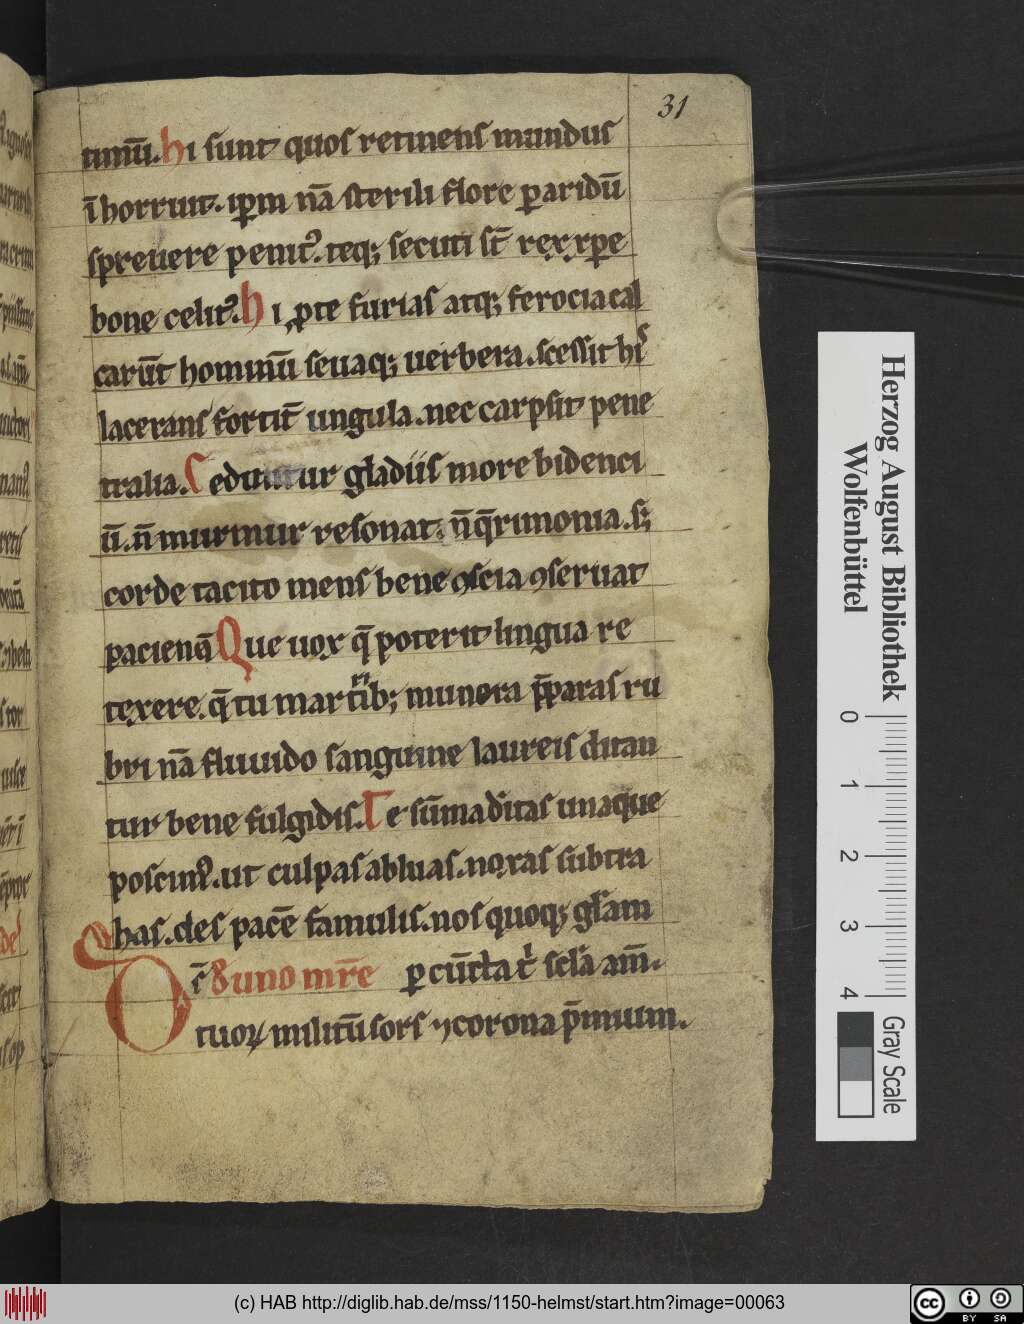 31
timū. hi sunt quos retinens mundus
ī horruit. ip̄m nā sterili flore ꝑaridū
sprevere penit᷒. teq; secuti st̄ rex xp̄e
bone celit᷒. hi ꝓ te furias atq; ferocia cal
carūt hominū sevaq; verbera. scessit hiˢ
lacerans fortit̄ ungula. nec carpsit pene
tralia. Ceduntur gladiis more bidenti
ū. n̄ murmur resonat. n̄ q̄rimonia. s;
corde tacito mens bene ꝯscia ꝯservat
pacientiā Que vox q̄ poterit lingua re
texere. q̄ tu martirib; munera p̄paras ru
bri nā fluuido sanguine laureis ditan
tur bene fulgidis. Te sūma deitas unaque
poscim᷒. ut culpas abluas. noxas subtra
has. des pacē famulis. nos quoq; gl̄am
per cūcta t͛ scl̄a am̄.
D s̄ de uno mr̄e
tuoꝝ militū sors ⁊ corona p̄mium.
Herzog August Bibliothek
Wolfenbüttel
0 1 2 3 4
Gray Scale
(c) HAB http://diglib.hab.de/mss/1150-helmst/start.htm?image=00063
cc BY SA